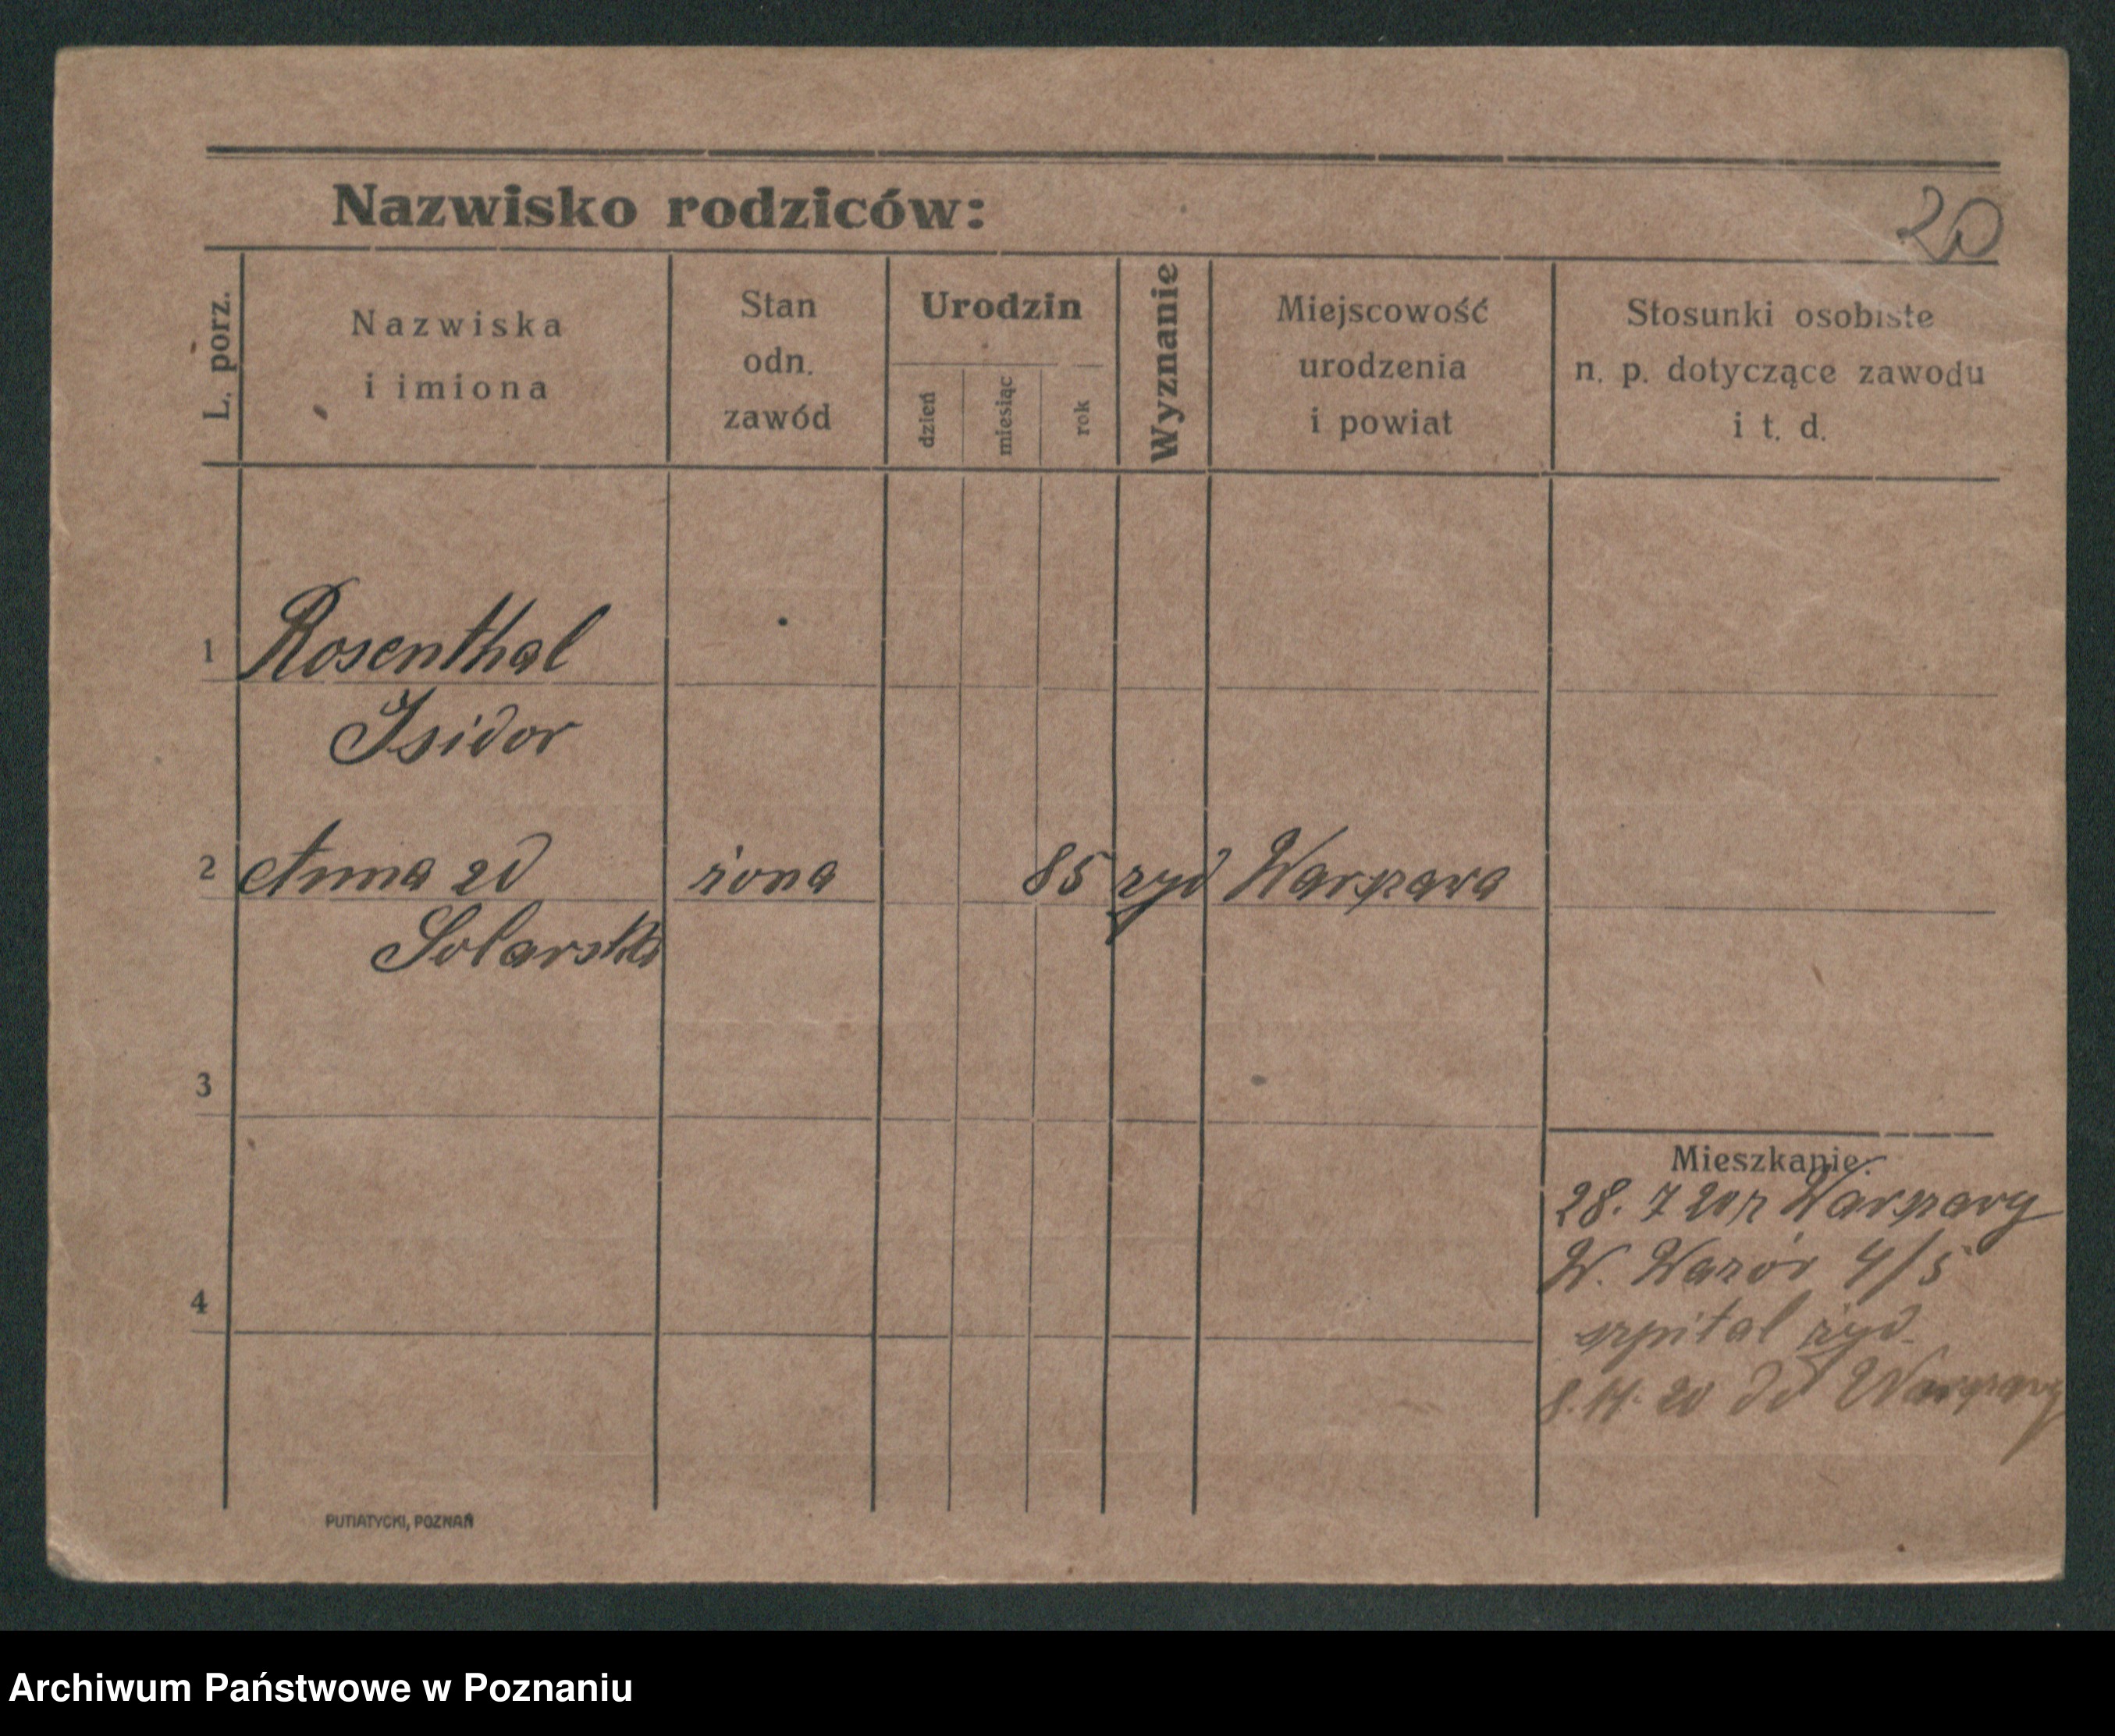 Nazwisko rodziców:
20
L. porz.
Nazwiska
i imiona
Stan
odn.
zawód
Urodzin
dzień
miesiąc
rok
Wyznanie
Miejscowość
urodzenia
i powiat
Stosunki osobiste
n. p. dotyczące zawodu
i t. d.
1 Rosenthal
Isidor
2 Anna zd żona 85 żyd Warszawa
Solarski
3
4
Mieszkanie:
28. 7 20 z Warszawy
W. 4/5
szpital żyd
8. 11. 20 do Warszawy
PUTIATYCKI, POZNAŃ
Archiwum Państwowe w Poznaniu